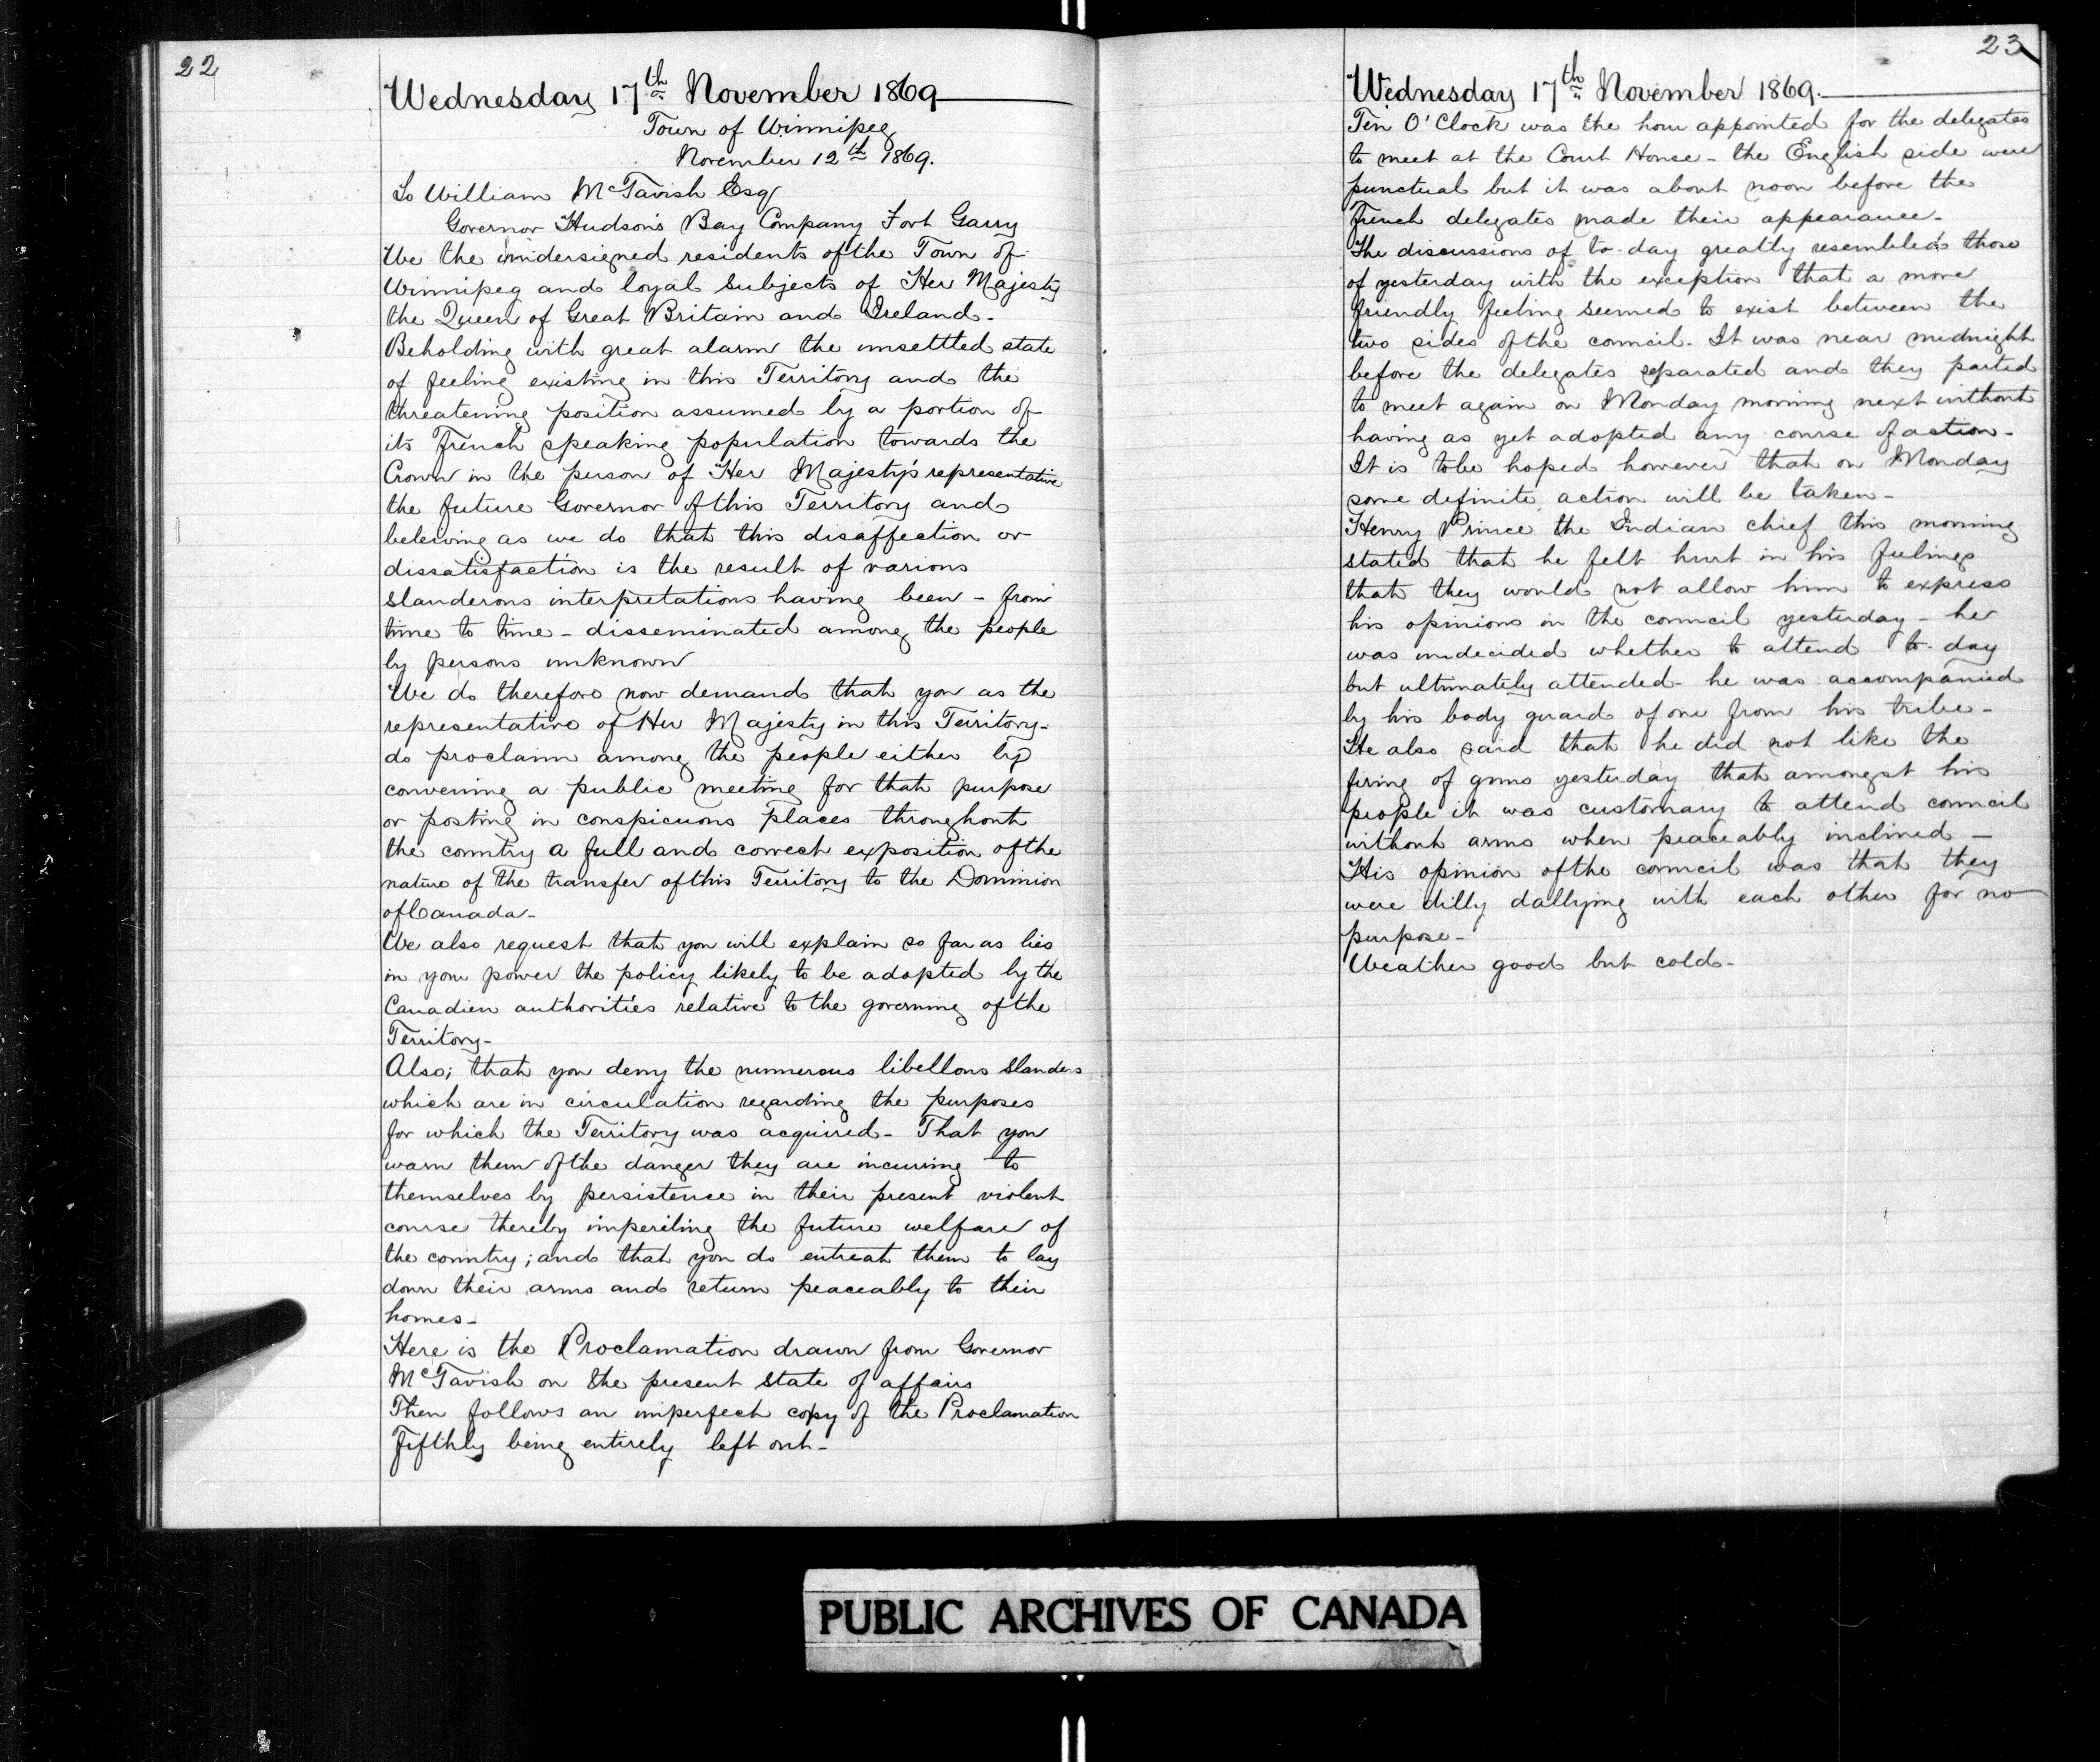 22
Wednesday 17th November 1869
Town of Winnipeg
November 12th 1869.
To William McTavish Esq
Governor Hudson's Bay Company Fort Garry
We the undersigned residents of the Town of
Winnipeg and loyal subjects of Her Majesty
the Queen of Great Britain and Ireland-
Beholding with great alarm the unsettled state
of feeling existing in this Territory and the
threatening position assumed by a portion of
its French speaking population towards the
Crown in the person of Her Majesty's representative
the future Governor of this Territory and
beleiving as we do that this disaffection or
dissatisfaction is the result of various
slanderous interpretations having been - from
time to time - disseminated among the people
by persons unknown
We do therefore now demand that you as the
representative of Her Majesty in this Territory-
do proclaim among the people either by
convening a public meeting for that purpose
or posting in conspicuous places throughout
the country a full and correct exposition of the
nature of the transfer of this Territory to the Dominion
of Canada-
We also request that you will explain so far as lies
in your power the policy likely to be adopted by the
Canadien authorities relative to the governing of the
Territory-
Also; that you deny the numerous libellous slanders
which are in circulation regarding the purposes
for which the Territory was acquired- That you
warn them of the danger they are incurring to
themselves by persistence in their present violent
course thereby imperiling the future welfare of
the country; and that you do entreat them to lay
down their arms and return peaceably to their
homes-
Here is the Proclamation drawn from Governor
McTavish on the present state of affairs
Then follows an imperfect copy of the Proclamation
Fifthly being entirely left out-
23
Wednesday 17th November 1869.
Ten O'Clock was the hour appointed for the delegates
to meet at the Court House - the English side were
punctual but it was about noon before the
French delegates made their appearance-
The discussions of to-day greatly resembled those
of yesterday with the exception that a more
friendly feeling seemed to exist between the
two sides of the council- It was near midnight
before the delegates separated and they parted
to meet again on Monday morning next without
having as yet adopted any course of action-
It is to be hoped however that on Monday
some definite action will be taken-
Henry Prince the Indian chief this morning
stated that he felt hurt in his feelings
that they would not allow him to express
his opinions in the council yesterday - he
was undecided whether to attend to-day
but ultimately attended- he was accompanied
by his body guard of one from his tribe-
He also said that he did not like the
firing of guns yesterday that amongst his
people it was customary to attend council
without arms when peaceably inclined -
His opinion of the council was that they
were dilly dallying with each other for no
purpose-
Weather good but cold-
PUBLIC ARCHIVES OF CANADA